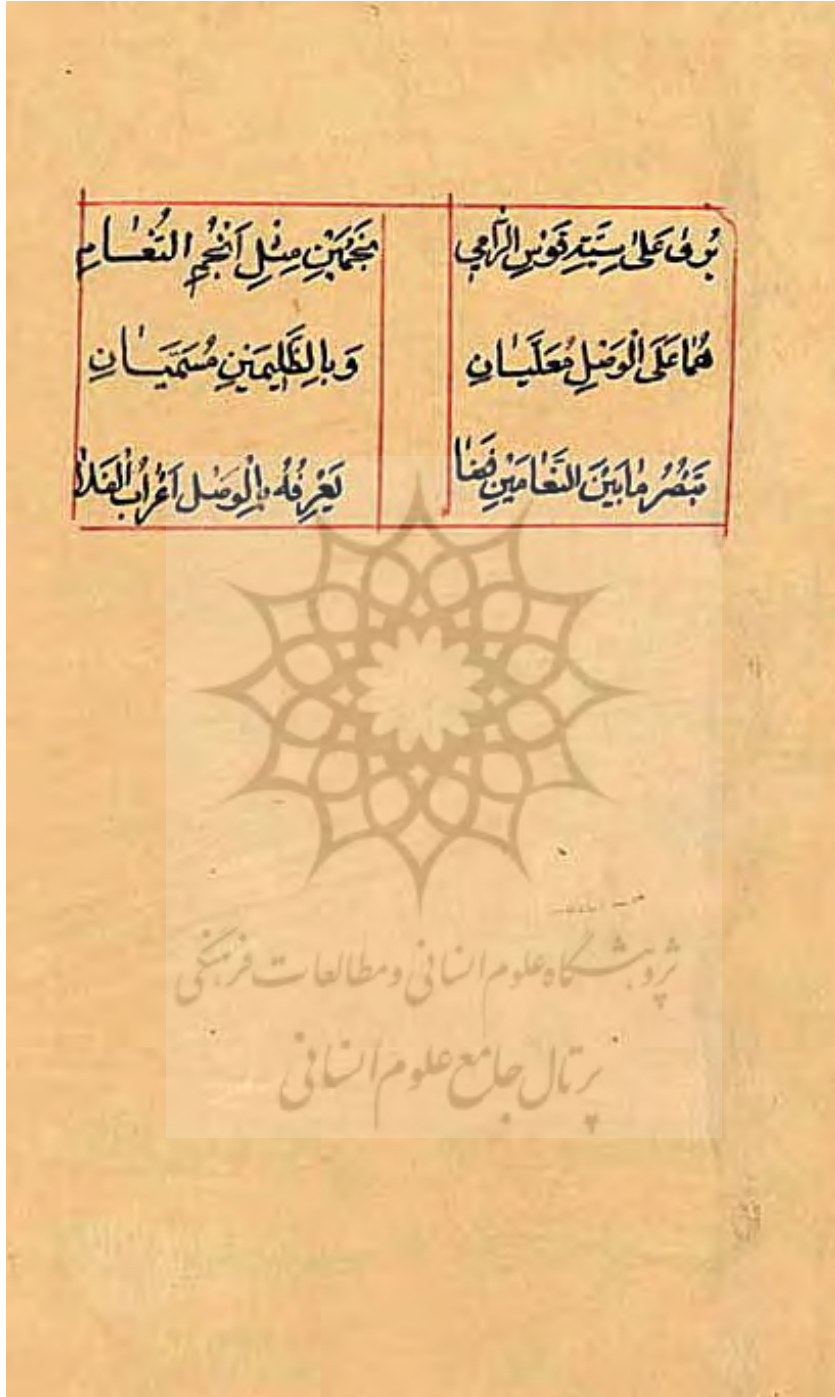 يُرىٰ عَلىٰ سِيَتَةِ قَوْسِ الرَّامِي نَجْمَيْنِ مِثْلِ اَنْجُمِ النَّعٰامِ
هُمٰا عَلَى الْوَصْلِ مُعَلَّيٰانِ وَبِالظَّلِيمَيْنِ مُسَمَّيٰانِ
تَبَصَّرْ مٰا بَيْنَ النَّعٰامَيْنِ يَعْرِفُهُ بِالْوَصْلِ اَعْرٰابُ الْفَلاٰ
پژوهشگاه علوم انسانی و مطالعات فرهنگی
پرتال جامع علوم انسانی